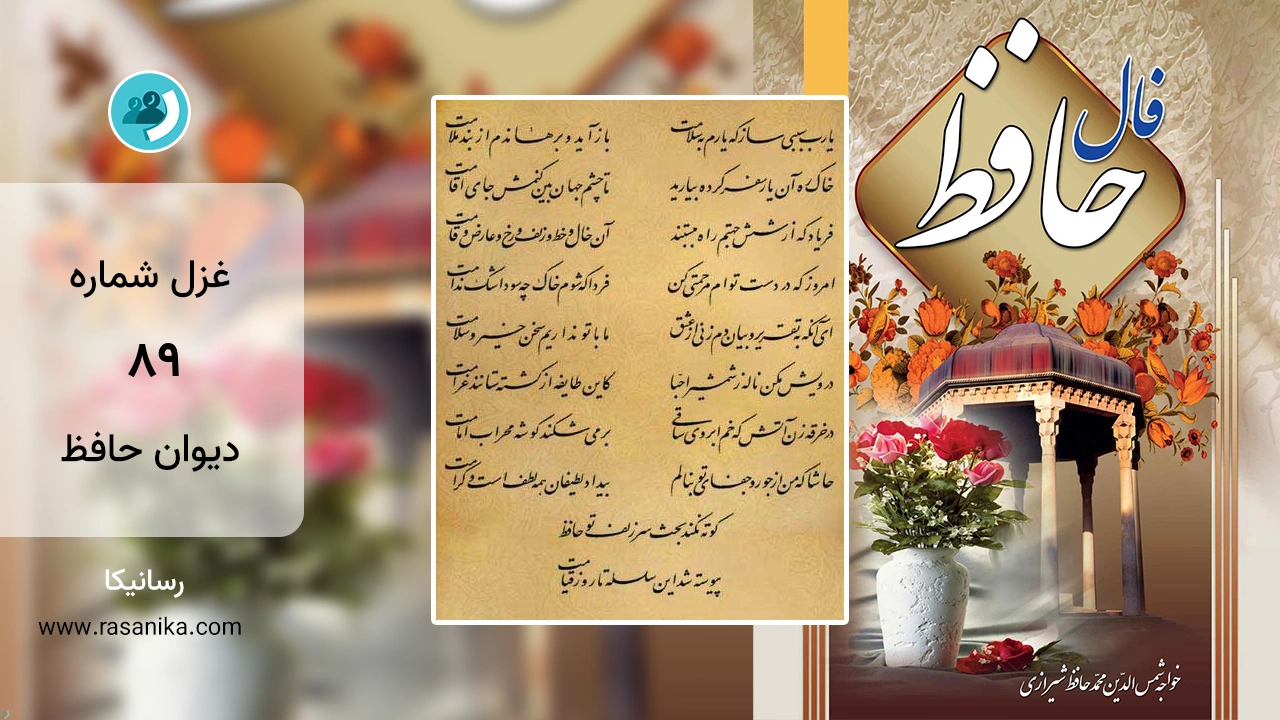 فال
حافظ
یارب سببی ساز که یارم به سلامت
بازآید و برهاندم از بند ملامت
خاک ره آن یار سفر کرده بیارید
تا چشم جهان بین کنمش جای اقامت
فریاد که از شش جهتم راه ببستند
آن خال و خط و زلف و رخ و عارض و قامت
امروز که در دست توام مرحمتی کن
فردا که شوم خاک چه سود اشک ندامت
ای آنکه به تقریر و بیان دم زنی از عشق
ما با تو نداریم سخن خیر و سلامت
درویش مکن ناله ز شمشیر احبا
کاین طایفه از کشته ستانند غرامت
در خرقه زن آتش که خم ابروی ساقی
بر می شکند گوشه محراب امامت
حاشا که من از جور و جفای تو بنالم
بیداد لطیفان همه لطف است و کرامت
کوته نکند بحث سر زلف تو حافظ
پیوسته شد این سلسله تا روز قیامت
غزل شماره
۸۹
دیوان حافظ
رسانیکا
www.rasanika.com
خواجه شمس الدین محمد حافظ شیرازی